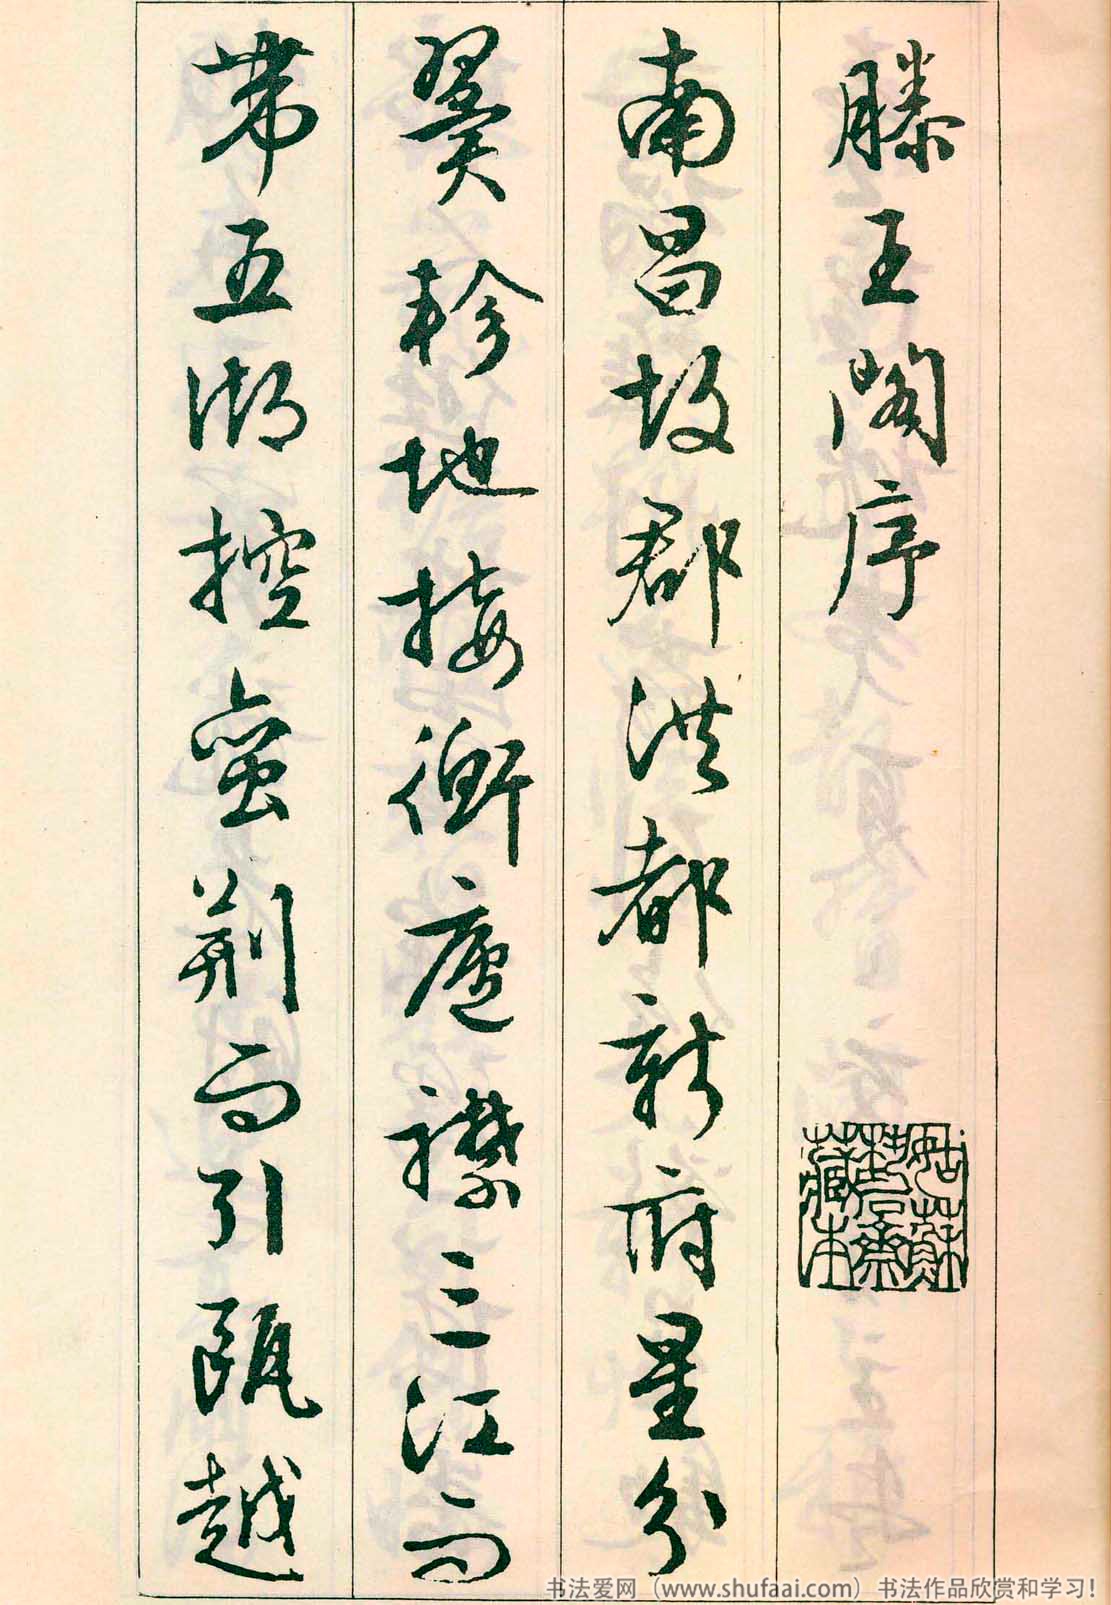 滕王閣序
南昌故郡洪都新府星分
翼軫地接衡廬襟三江而
帶五湖控蠻荊而引甌越
姑蘇
齋
藏本
书法爱网（www.shufaai.com）书法作品欣赏和学习！